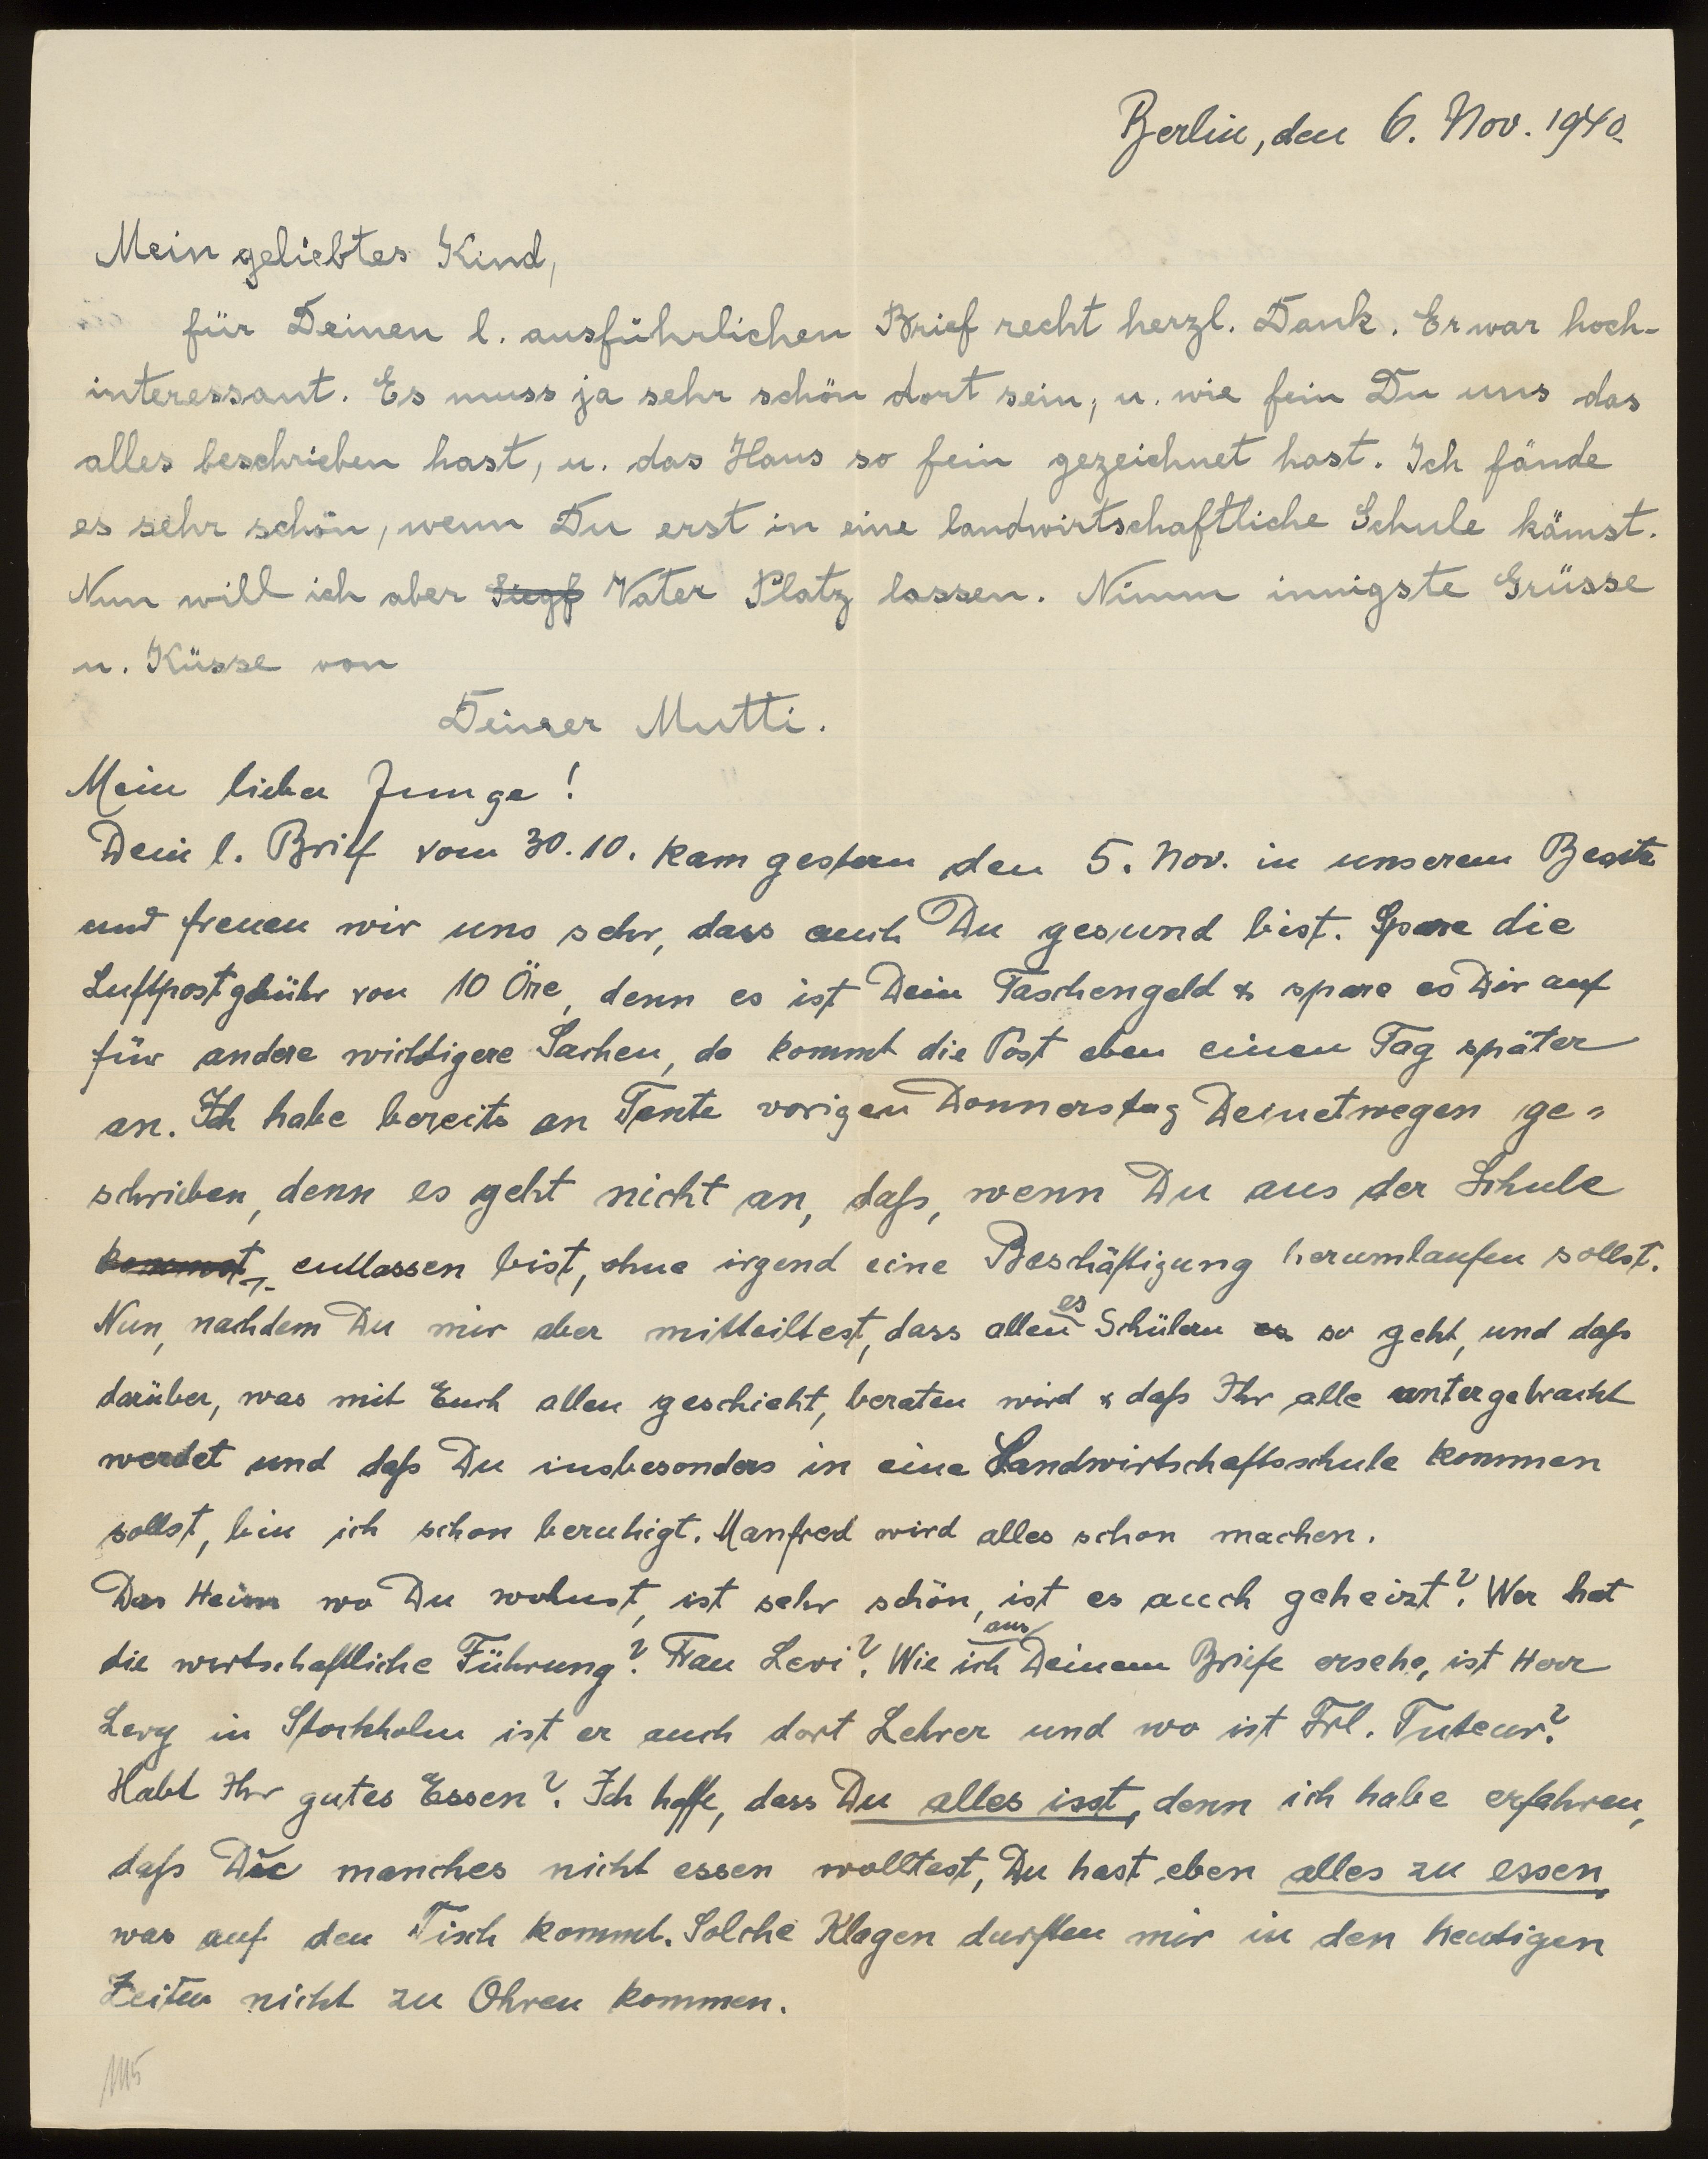 Berlin, den 6. Nov. 1940.
Mein geliebtes Kind,
für Deinen l. ausführlichen Brief recht herzl. Dank. Er war hoch-
interessant. Es muss ja sehr schön dort sein, u. wie fein Du uns das
alles beschrieben hast, u. das Haus so fein gezeichnet hast. Ich fände
es sehr schön, wenn Du erst in eine landwirtschaftliche Schule kämst.
Nun will ich aber Vater Platz lassen. Nimm innigste Grüsse
u. Küsse von
Deiner Mutti.
Mein lieber Junge!
Dein l. Brief vom 30.10. kam gestern den 5. Nov. in unserem Besitz
und freuen wir uns sehr, dass auch Du gesund bist. Spare die
Luftpostgebühr von 10 Öre, denn es ist Dein Taschengeld & spare es Dir auf
für andere wichtigere Sachen, da kommt die Post eben einen Tag später
an. Ich habe bereits an Tante vorigen Donnerstag Deinetwegen ge=
schrieben, denn es geht nicht an, daß, wenn Du aus der Schule
kommst, entlassen bist, ohne irgend eine Beschäftigung herumlaufen sollst.
Nun, nachdem Du mir aber mitteiltest, dass allen es Schülern es so geht, und daß
darüber, was mit Euch allen geschieht, beraten wird & daß Ihr alle untergebracht
werdet und daß Du insbesonders in eine Landwirtschaftsschule kommen
sollst, bin ich schon beruhigt. Manfred wird alles schon machen.
Das Heim wo Du wohnst, ist sehr schön, ist es auch geheizt? Wer hat
die wirtschaftliche Führung? Frau Levi? Wie ich aus Deinem Briefe ersehe, ist Herr
Levy in Stockholm ist er auch dort Lehrer und wo ist Frl. Tuteur?
Habt Ihr gutes Essen? Ich hoffe, dass Du alles isst, denn ich habe erfahren,
daß Du manches nicht essen wolltest, Du hast eben alles zu essen,
was auf den Tisch kommt. Solche Klagen durften mir in den heutigen
Zeiten nicht zu Ohren kommen.